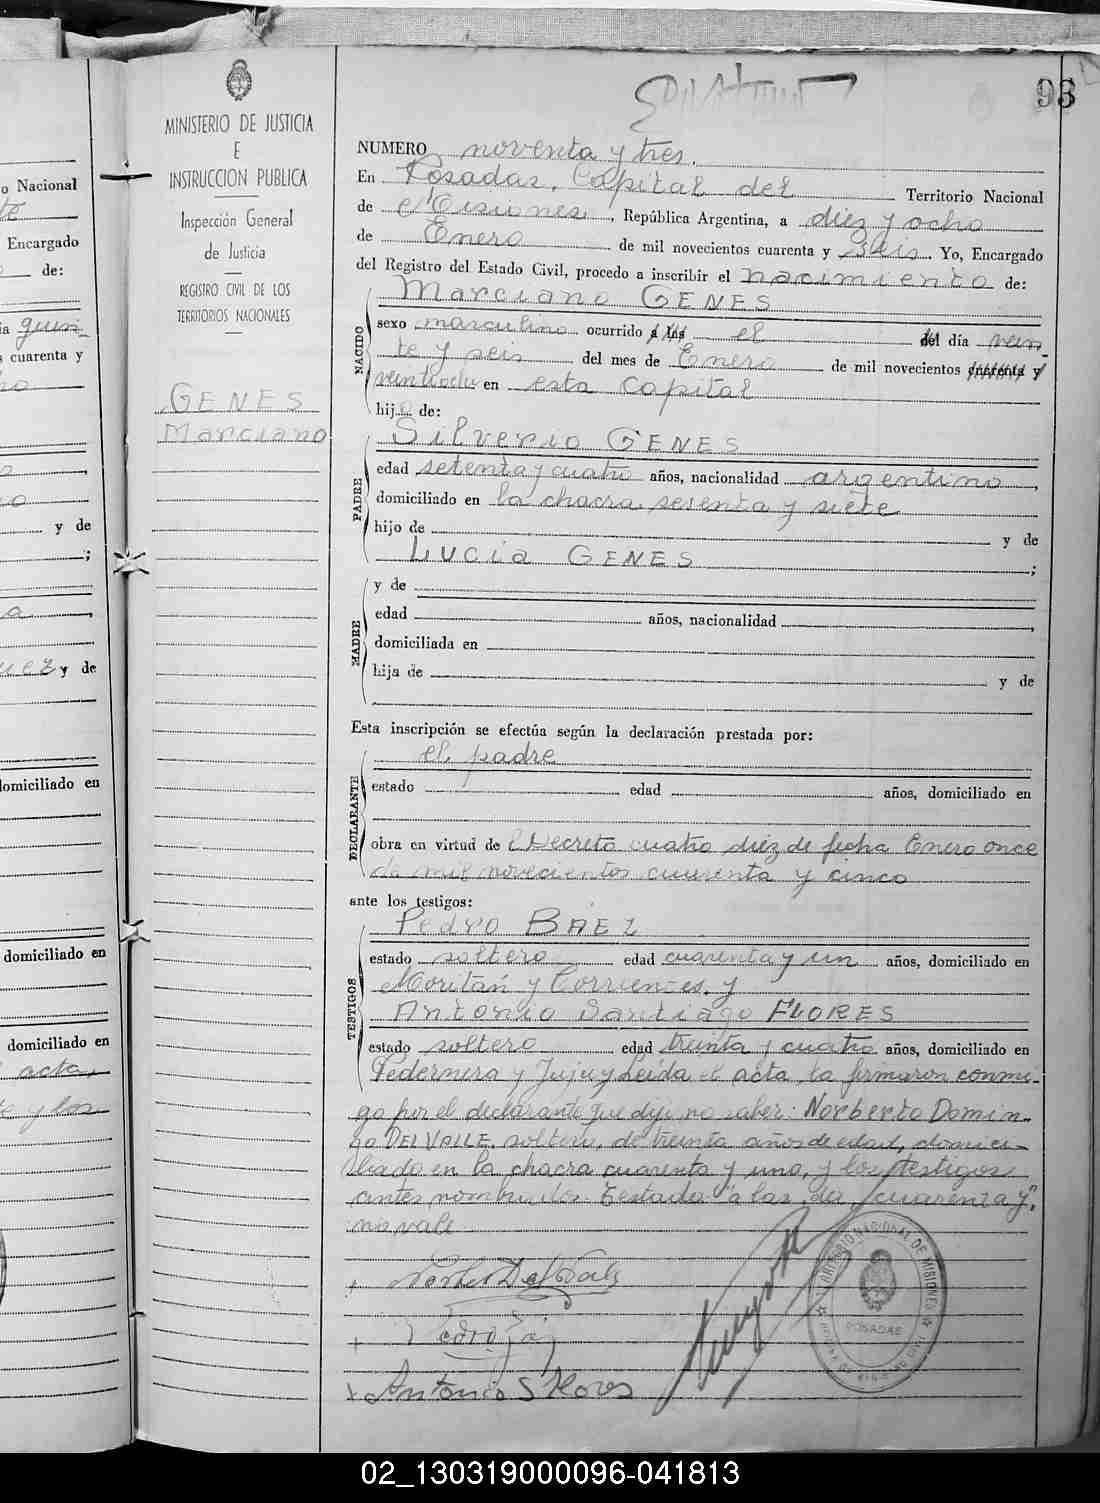 93
MINISTERIO DE JUSTICIA
E
INSTRUCCION PUBLICA
Inspección General
de Justicia
REGISTRO CIVIL DE LOS
TERRITORIOS NACIONALES
GENES
Marciano
NUMERO noventa y tres.
En Posadas, Capital del Territorio Nacional
de Misiones, República Argentina, a diez y ocho
de Enero de mil novecientos cuarenta y seis. Yo, Encargado
del Registro del Estado Civil, procedo a inscribir el nacimiento de:
NACIDO
Marciano GENES
sexo masculino ocurrido a las el del día vein-
te y seis del mes de Enero de mil novecientos cuarenta y
veintiocho en esta Capital
hij de:
PADRE
Silverio GENES
edad setenta y cuatro años, nacionalidad argentino,
domiciliado en la chacra sesenta y siete
hijo de y de
Lucia GENES ;
MADRE
y de
edad años, nacionalidad ,
domiciliada en
hija de y de
Esta inscripción se efectúa según la declaración prestada por:
DECLARANTE
el padre
estado edad años, domiciliado en
obra en virtud de el Decreto cuatro diez de fecha Enero once
de mil novecientos cuarenta y cinco
ante los testigos:
TESTIGOS
Pedro BAEZ
estado soltero edad cuarenta y un años, domiciliado en
y Corrientes. y
Antonio Santiago FLORES
estado soltero edad treinta y cuatro años, domiciliado en
Pedernera y Jujuy Leída el acta, la firmaron conmi-
go por el declarante que dijo no saber: Norberto Domin-
go DEL VALLE, soltero, de treinta años de edad, domici-
liado en la chacra cuarenta y uno, y los testigos
antes nombrados. Testado "a las, del, cuarenta y",
no vale
Pedro
Antonio S Flores
POSADAS
o Nacional
Encargado
de:
cuarenta y
y de
;
y de
domiciliado en
domiciliado en
domiciliado en
acta
02_130319000096-041813